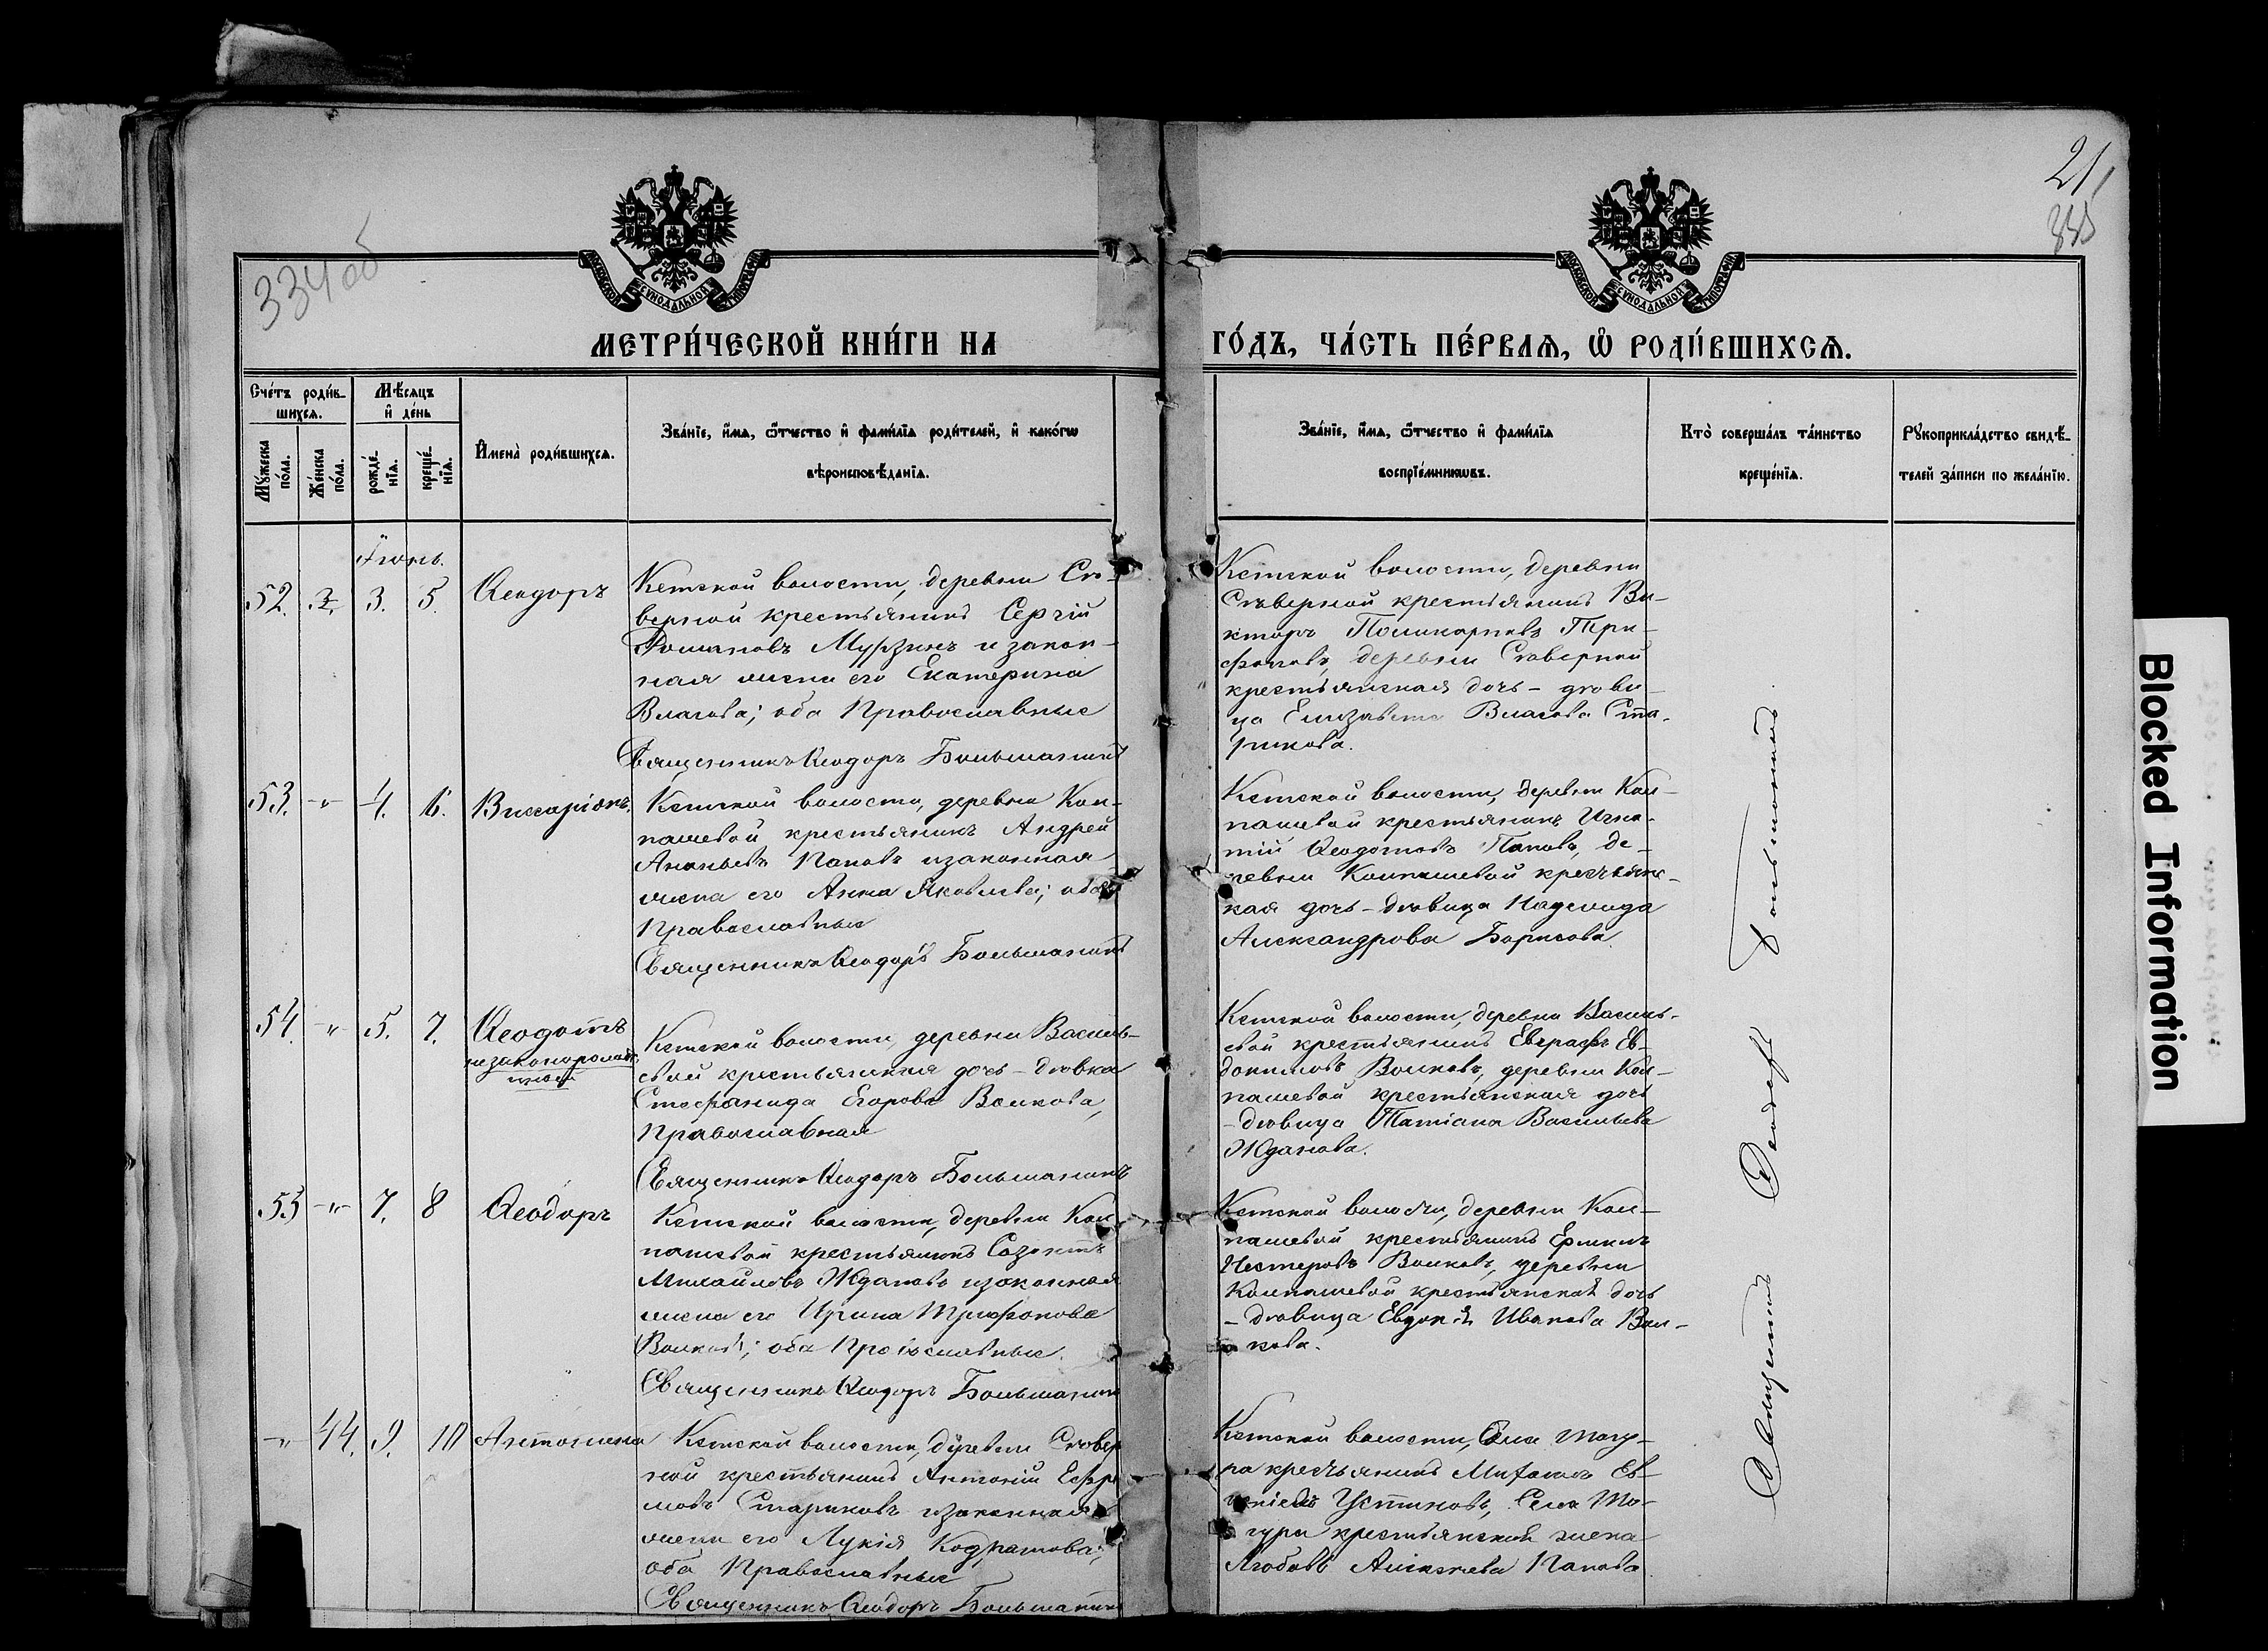 334 об
21
335
МОСКОВСКОЙ СѴНОДАЛЬНОЙ ТИПОГРАФІИ
МОСКОВСКОЙ СѴНОДАЛЬНОЙ ТИПОГРАФІИ
МЕТРИ́ЧЕСКОЙ КНИ́ГИ НА
ГО́ДЪ, ЧА́СТЬ ПЕ́РВАѦ, Ѡ҆ РОДИ́ВШИХСѦ.
Сче́тъ роди́в-
шихсѧ.
Мꙋ́жеска
по́ла.
Же́нска
по́ла.
Мѣ́сѧцъ
и҆ де́нь
рожде́-
нїѧ.
креще́-
нїѧ.
И҆мена̀ роди́вшихсѧ.
Зва́нїе, и҆́мѧ, ѻ҆́тчество и҆ фами́лїѧ роди́телей, и҆ како́гѡ
вѣроисповѣ́данїѧ.
Зва́нїе, и҆́мѧ, ѻ҆́тчество и҆ фами́лїѧ
воспрїе́мникѡвъ.
Кто̀ соверша́лъ та́инство
креще́нїѧ.
Рꙋкоприкла́дство свидѣ́-
телей за́писи по жела́нїю.
Іюнь.
52. 3. 5. Ѳеодоръ
Кетской волости, деревни Сѣ-
верной крестьянинъ Сергій
Романовъ Мурзинъ и закон-
ная жена его Екатерина
Власова; оба Православные
Священникъ Ѳеодоръ Большанинъ
Кетской волости, деревни
Сѣверной крестьянинъ Ви-
кторъ Поликарповъ Три-
фоновъ, деревни Сѣверной
крестьянская дочь - дѣви-
ца Елизавета Власова Ста-
рикова.
53. -"- 4. 6. Виссаріонъ.
Кетской волости, деревни Кол-
пашевой крестьянинъ Андрей
Ананьевъ Пановъ и законная
жена его Анна Яковлева; оба
Православные
Священникъ Ѳеодоръ Большанинъ
Кетской волости, деревни Кол-
пашевой крестьянинъ Игна-
тій Ѳеодотовъ Пановъ, де-
ревни Колпашевой крестьянс-
кая дочь - дѣвица Надежда
Александрова Борисова.
54. -"- 5. 7. Ѳеодотъ
незаконорожд-
Кетской волости, деревни Василь-
евой крестьянская дочь - дѣвка
Стефанида Егорова Волкова,
Православная
Священникъ Ѳеодоръ Большанинъ
Кетской волости, деревни Василь-
евой крестьянинъ Евграфъ Ев-
докимовъ Волковъ, деревни Кол-
пашевой крестьянская дочь
- дѣвица Татіана Васильева
Жданова.
55 -"- 7. 8 Ѳеодоръ
Кетской волости, деревни Кол-
пашевой крестьянинъ Созонтъ
Михайловъ Ждановъ и законная
жена его Ирина Трифонова
Волкова; оба Православные.
Священникъ Ѳеодоръ Большанинъ
Кетской волости, деревни Кол-
пашевой крестьянинъ Ермилъ
Нестеровъ Волковъ, деревни
Колпашевой крестьянская дочь
- дѣвица Евдокія Иванова Вол-
кова.
-"- 44. 9. 10 Антонина
Кетской волости, деревни Сѣвер
ной крестьянинъ Антоній Ефре
мовъ Стариковъ и законная
жена его Лукія Кодратова;
оба Православные
Священникъ Ѳеодоръ Большанинъ
Кетской волости, Села Тогу-
ра крестьянинъ Ев-
Устиновъ, Села То-
гура крестьянская жена
Любовь Алексѣева Панова
Священникъ Ѳеодоръ Большанинъ
Blocked Information